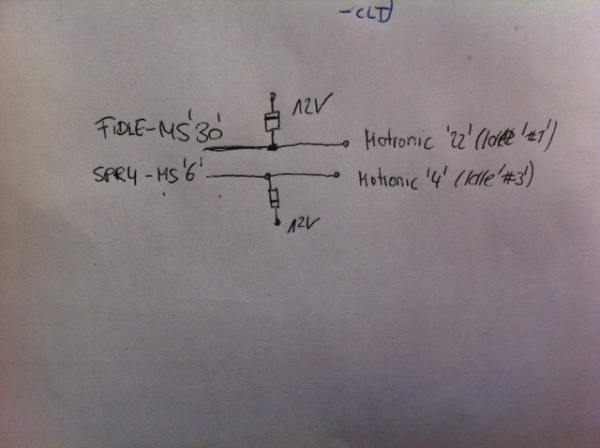 -CLT
12V
FIDLE-MS'30'
Motronic '22' (Idle '#1')
SPR4-MS'6'
Motronic '4' (Idle '#3')
12V